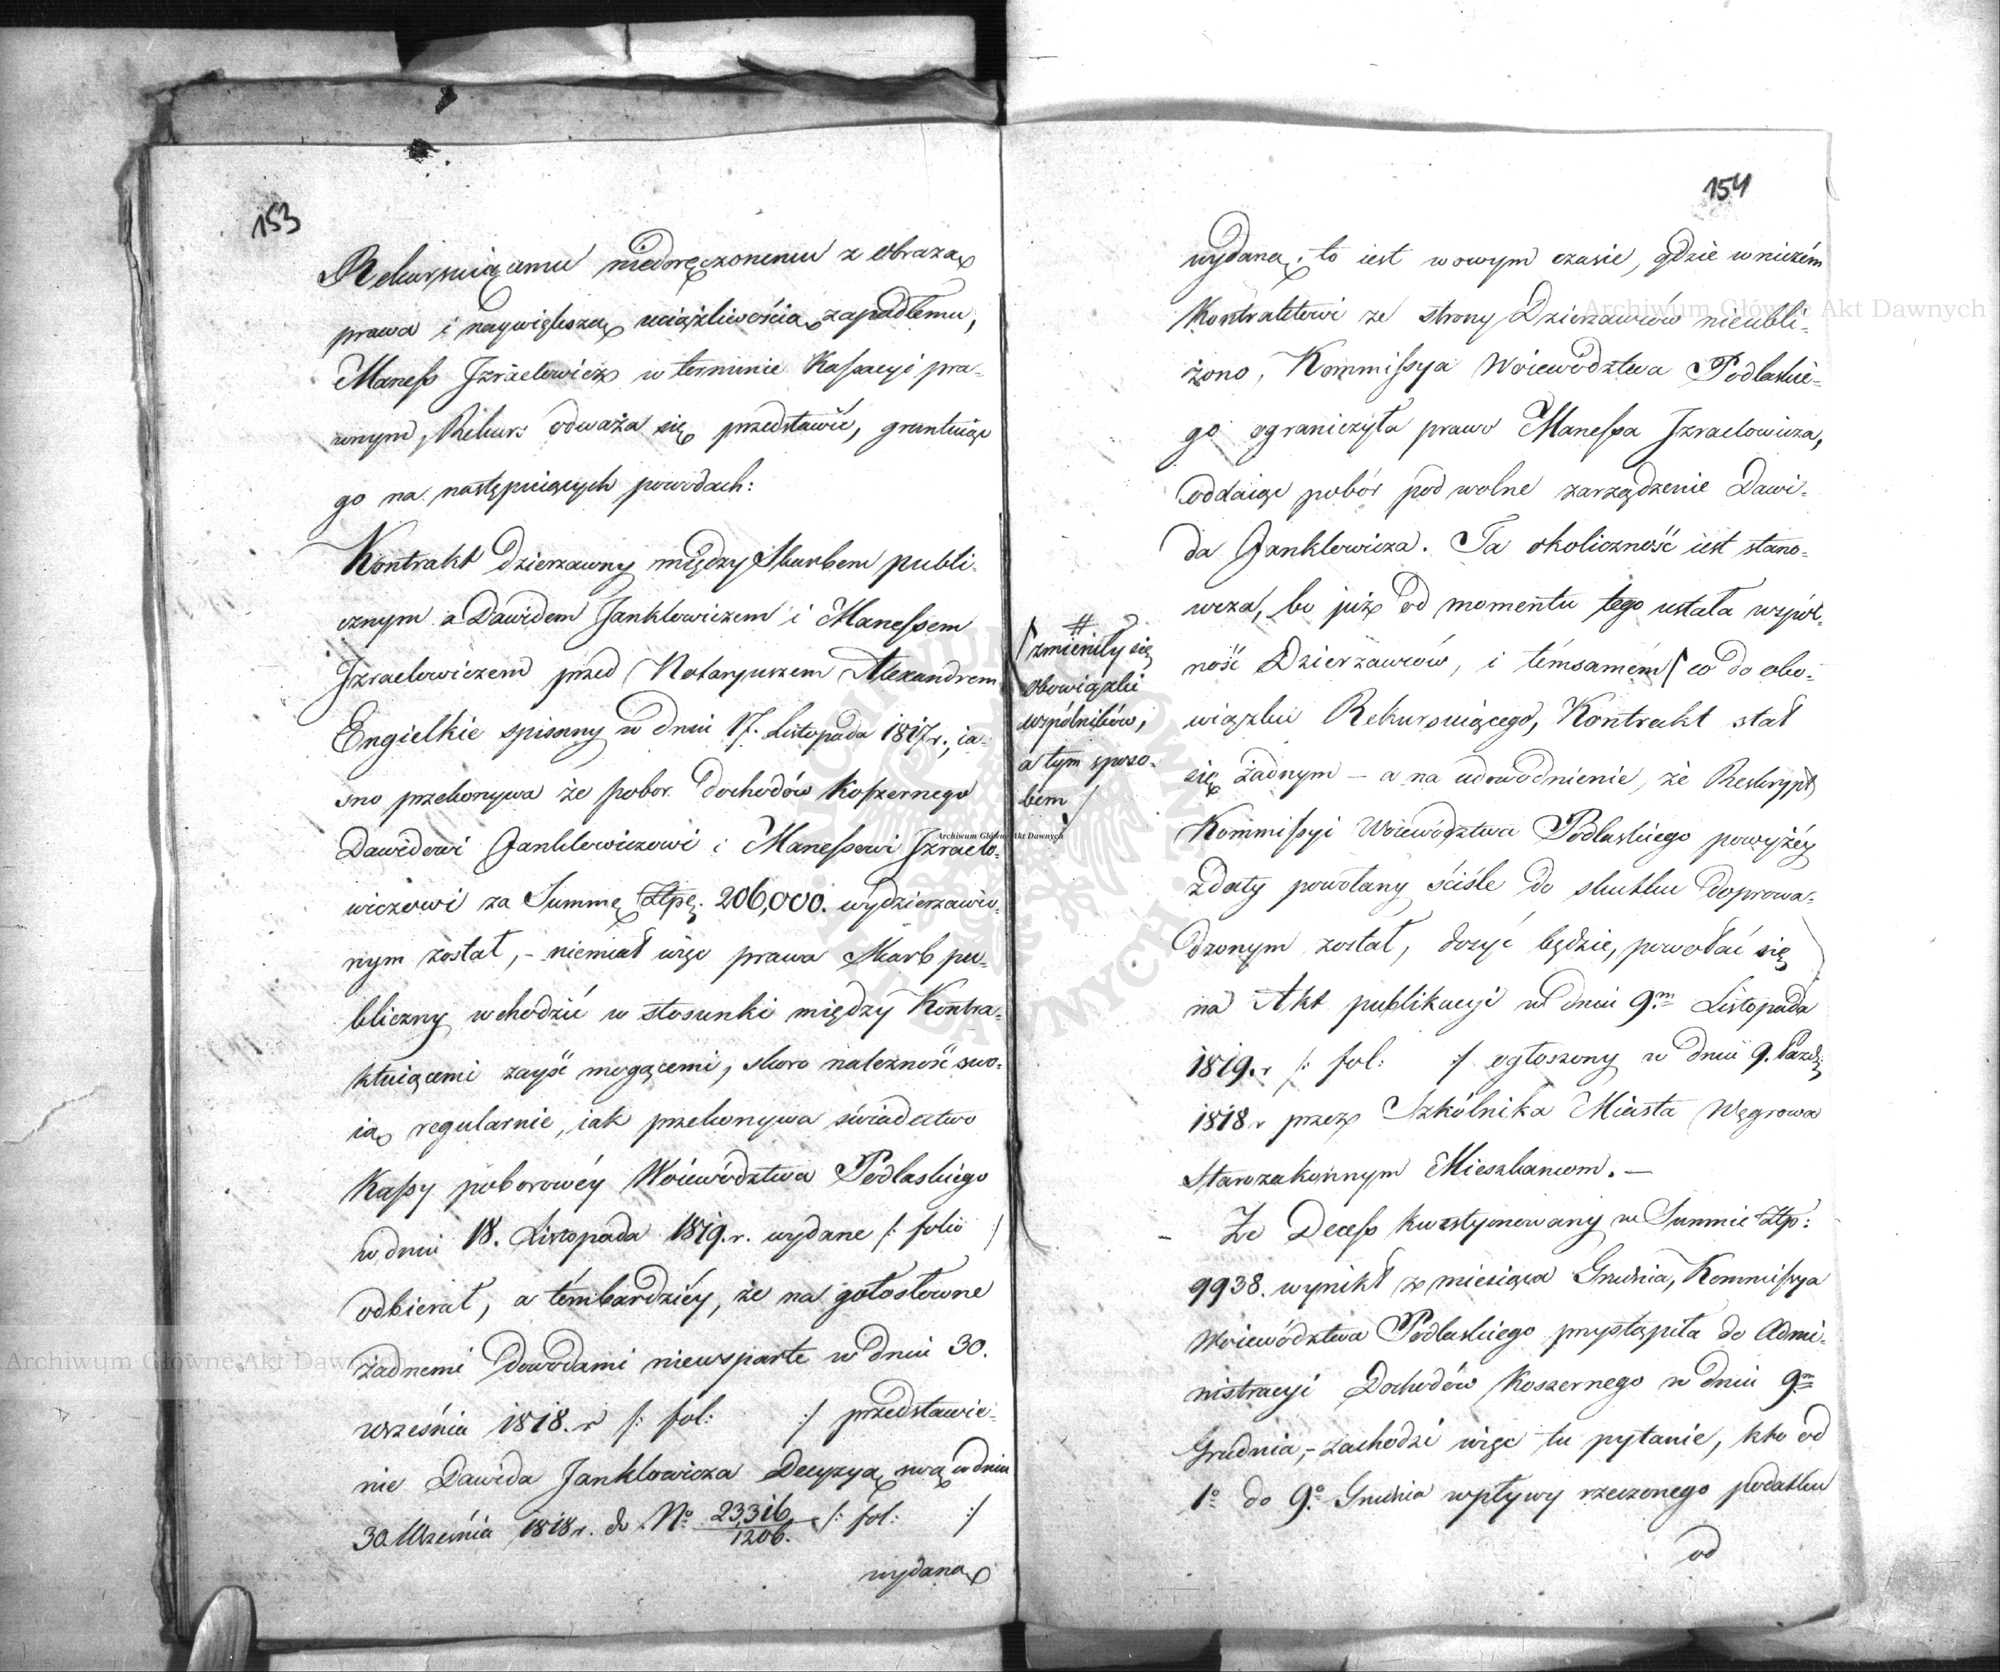 153
Rekursuiącemu niedoręczonemu z obrazą
prawa i naywiększą uciążliwością zapadłemu,
Maness Izraelewicz w terminie Kassacyi pra-
wnym, Rekurs odważa się przedstawić, gruntuiąc
go na następuiących powodach:
Kontrakt Dzierzawny między Skarbem publi-
cznym a Dawidem Janklewiczem i Manessem
Izraelewiczem przed Notaryuszem Alexandrem
Engielkie spisany w dniu 17. Listopada 1817 r., ia-
sno przekonywa że pobor dochodów koszernego
Dawidowi Janklewiczowi i Manessowi Izraelo-
wiczowi za Summę Złpę. 206,000. wydzierzawio-
nym został, - niemiał więc prawa Skarb pu-
bliczny wchodzić w stosunki między Kontra-
ktuiącemi zayść mogącemi, skoro należność swo-
ią regularnie, iak przekonywa świadectwo
Kassy poborowéy Woiewództwa Podlaskiego
w dniu 18. Listopada 1819. r. wydane /: folio :/
odbierał, a témbardziéy, że na gołosłowne
żadnemi dowodami niewsparte w dniu 30.
września 1818. r /: fol: :/ przedstawie-
nie Dawida Janklewicza Decyzyą swą w dniu
30 Września 1818 r. do No 23,316/1206. /: fol: :/
wydaną
154
wydaną, to iest w owym czasie, gdzie w niczém
Kontraktowi ze strony Dzierzawców nieubli-
żono, Kommissya Woiewództwa Podlaskie-
go ograniczyła prawo Manessa Izraelowicza,
oddaiąc pobór pod wolne zarządzenie Dawi-
da Janklewicza. Ta okoliczność iest stano-
wcza, bo już od momentu tego ustała wspól-
ność Dzierzawców, i témsamém / co do obo-
wiązku Rekursuiącego, Kontrakt stał
się żadnym – a na udowodnienie, że Reskrypt
Kommissyi Woiewództwa Podlaskiego powyżéy
z daty powołany ściśle do skutku doprowa-
dzonym został, dosyć będzie, powołać się
na Akt publikacyi w dniu 9.m Listopada
1819. r /: fol: :/ ogłoszony w dniu 9. Pazdz:
1818 r przez Szkólnika Miasta Węgrowa
Starozakonnym Mieszkancom. –
– Że Decess kwestyonowany w Summie Złp:
9938. wynikł z miesiąca Grudnia, Kommissya
Woiewództwa Podlaskiego przystąpiła do Admi-
nistracyi Dochodów Koszernego w dniu 9m
Grudnia, - zachodzi więc tu pytanie, kto od
1o do 9o Grudnia wpływy rzeczonego podatku
od
#
/ zmieniły się
obowiązki
wspólników,
a tym sposo-
bem /
Archiwum Główne Akt Dawnych
Archiwum Główne Akt Dawnych
Archiwum Główne Akt Dawnych